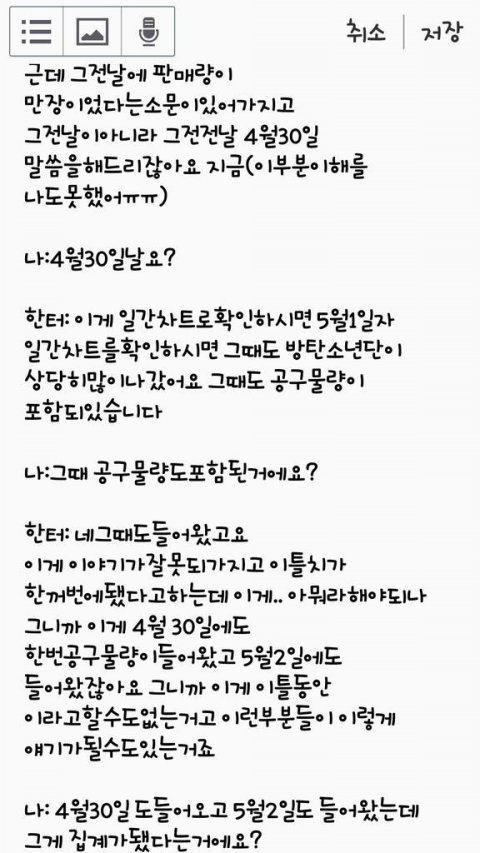 취소 저장
근데 그전날에 판매량이
만장이었다는소문이있어가지고
그전날이아니라 그전전날 4월30일
말씀을해드리잖아요 지금(이부분이해를
나도못했어ㅠㅠ)
나:4월30일날요?
한터: 이게 일간차트로확인하시면 5월1일자
일간차트를확인하시면 그때도 방탄소년단이
상당히많이나갔어요 그때도 공구물량이
포함되있습니다
나:그때 공구물량도포함된거에요?
한터: 네그때도들어왔고요
이게 이야기가잘못되가지고 이틀치가
한꺼번에됐다고하는데 이게.. 아뭐라해야되나
그니까 이게 4월 30일에도
한번공구물량이들어왔고 5월2일에도
들어왔잖아요 그니까 이게 이틀동안
이라고할수도없는거고 이런부분들이 이렇게
얘기가될수도있는거죠
나: 4월30일 도들어오고 5월2일도 들어왔는데
그게 집계가됐다는거에요?